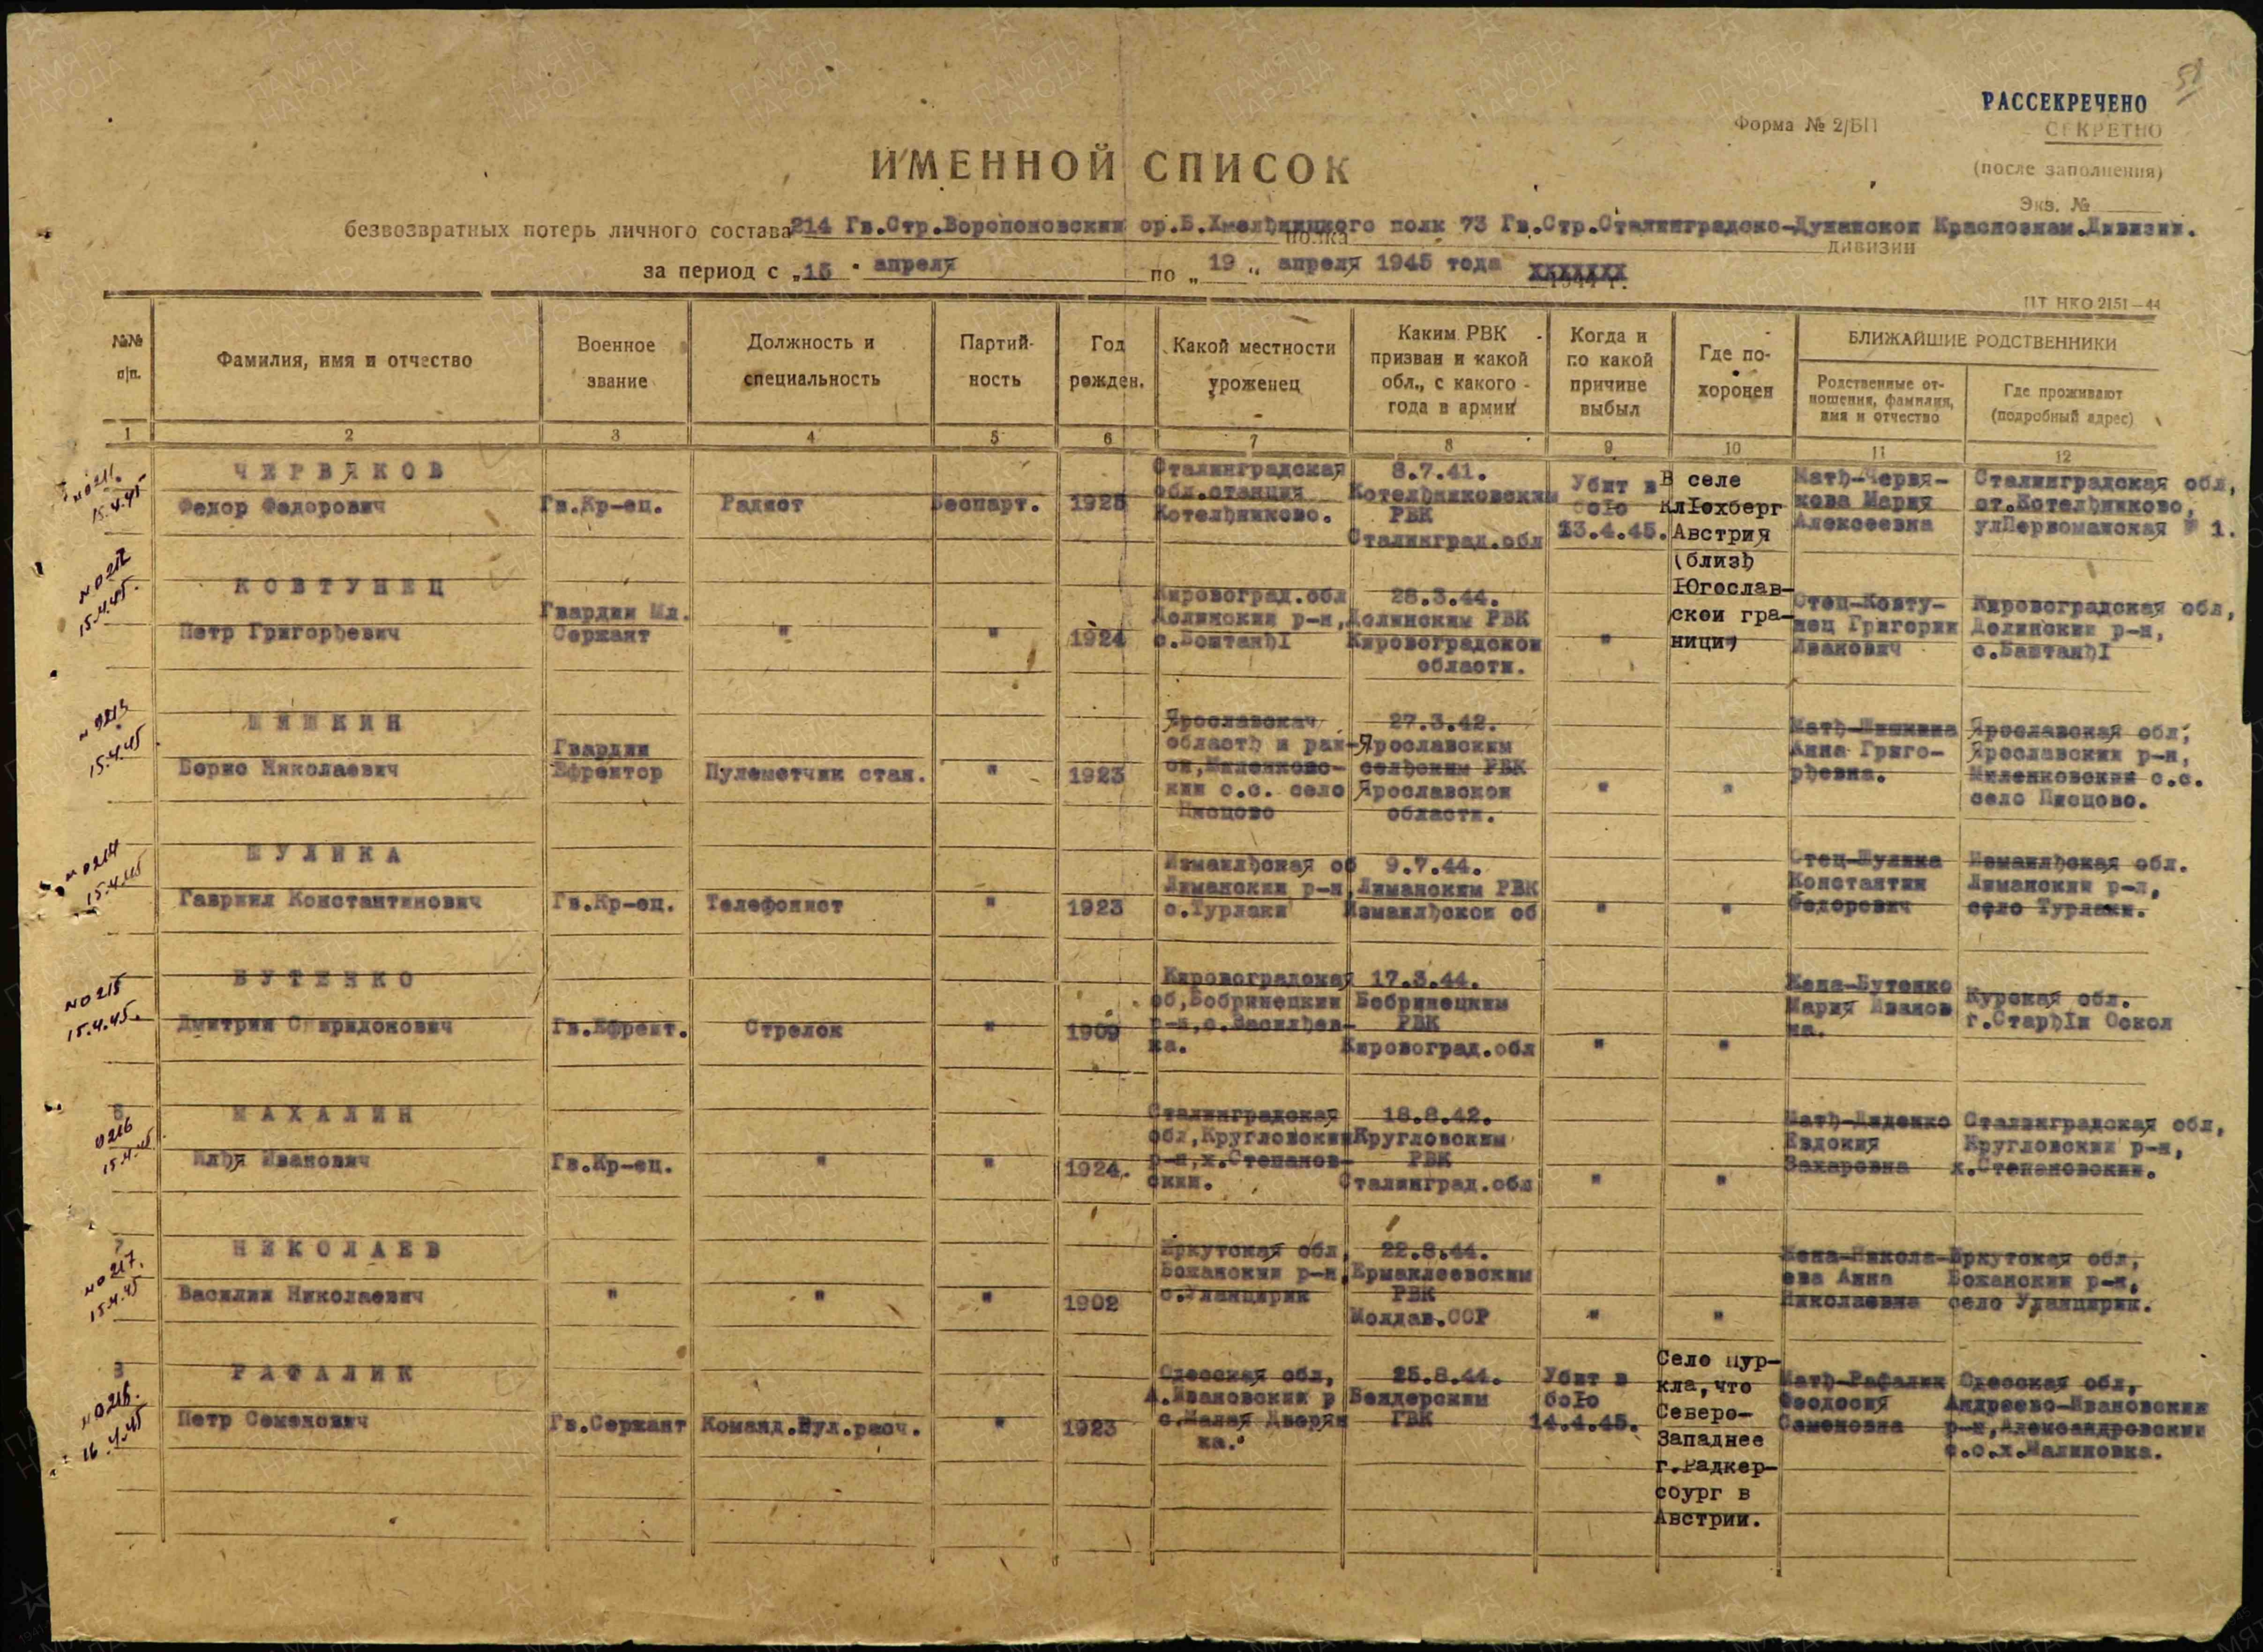 51
РАССЕКРЕЧЕНО
Форма № 2/БП
СЕКРЕТНО
(после заполнения)
Экз. №
ИМЕННОЙ СПИСОК
безвозвратных потерь личного состава 214 Гв.Стр.Воропоновский ор.Б.Хмелђницкого полк 73 Гв.Стр.Сталинградско-Дунайской Краснознам.Дивизии.
полка
дивизии
за период с „15 " апреля по „ 19 „ апреля 1945 года ХХХХХХХ
1944 г.
ПТ НКО 2151—44
№№ п/п.
Фамилия, имя и отчество
Военное звание
Должность и специальность
Партий-ность
Год рожден.
Какой местности уроженец
Каким РВК призван и какой обл., с какого года в армии
Когда и по какой причине выбыл
Где по-хоронен
БЛИЖАЙШИЕ РОДСТВЕННИКИ
Родственные от-ношения, фамилия, имя и отчество
Где проживают (подробный адрес)
1 2 3 4 5 6 7 8 9 10 11 12
№0211.
15.4.45
ЧЕРВЯКОВ
Федор Федорович
Гв.Кр-ец.
Радист
Беспарт.
1925
Сталинградская
обл.станция
Котелђниково.
8.7.41.
Котелђниковским
РВК
Сталинград.обл
Убит в
боIо
13.4.45.
В селе
КлIохберг
Австрия
(близђ
Югослав-
ской гра-
ници)
Матђ-Червя-
кова Мария
Алексеевна
Сталинградская обл,
ст.Котелђниково,
улПервомайская № 1.
№0212
15.4.45.
КОВТУНЕЦ
Петр Григорђевич
Гвардии Мл.
Сержант
"
"
1924
Кировоград.обл
Долинский р-н,
с.БоштанђI
28.3.44.
Долинским РВК
Кировоградской
области.
"
Отец-Ковту-
нец Григорий
Иванович
Кировоградская обл,
Долинский р-н,
с.БаштанђI
№0213
15.4.45
ШИШКИН
Борис Николаевич
Гвардии
Ефрейтор
Пулеметчик стан.
"
1923
Ярославскач
областђ и рай-
он,Миленковс-
кий с.с. село
Писцово
27.3.42.
Ярославским
селђским РВК
Ярославской
области.
"
"
Матђ-Шишкина
Анна Григо-
рђевна.
Ярославская обл,
Ярославский р-н,
Миленковский с.с.
село Писцово.
№0214
15.4.45
ШУЛИКА
Гавриил Константинович
Гв.Кр-ец.
Телефонист
"
1923
Измаилђская об
Лиманский р-н,
с.Турлаки
9.7.44.
Лиманским РВК
Измаилђской об
"
"
Отец-Шулика
Константин
Федорович
Измаилђская обл.
Лиманский р-н,
село Турлаки.
№0215
15.4.45.
БУТЕНКО
Дмитрий Спиридонович
Гв.Ефрейт.
Стрелок
"
1909
Кировоградская
об,Бобринецкий
р-н,с.Василђев-
ка.
17.3.44.
Бобринецким
РВК
Кировоград.обл
"
"
Жена-Бутенко
Мария Иванов
на.
Курская обл.
г.СтарђIй Оскол
6
0216
15.4.45
МАХАЛИН
Илђя Иванович
Гв.Кр-ец.
"
"
1924.
Сталинградская
обл,Кругловский
р-н,х.Степанов-
ский.
18.8.42.
Кругловским
РВК
Сталинград.обл
"
"
Матђ-Диденко
Евдокия
Захаровна
Сталинградская обл,
Кругловский р-н,
х.Степановский.
7
№0217.
15.4.45
НИКОЛАЕВ
Василий Николаевич
"
"
"
1902
Иркутская обл,
Боханский р-н,
с.Уланцирик
22.8.44.
Ермаклеевским
РВК
Молдав.ССР
"
"
Жена-Никола-
ева Анна
Николаевна
Иркутская обл,
Боханский р-н,
село Уланцирик.
8
№0218.
16.4.45
РАФАЛИК
Петр Семенович
Гв.Сержант
Команд.Пул.расч.
"
1923
Одесская обл,
А.Ивановский р
с.Малая Дворян
ка.
25.8.44.
Бендерским
ГВК
Убит в
боIо
14.4.45.
Село Пур-
кла,что
Северо-
Западнее
г.Радкер-
сбург в
Австрии.
Матђ-Рафалик
Феодосия
Семеновна
Одесская обл,
Андреево-Ивановский
р-н,Александровский
с.с.х.Малиновка.
ПАМЯТЬ НАРОДА